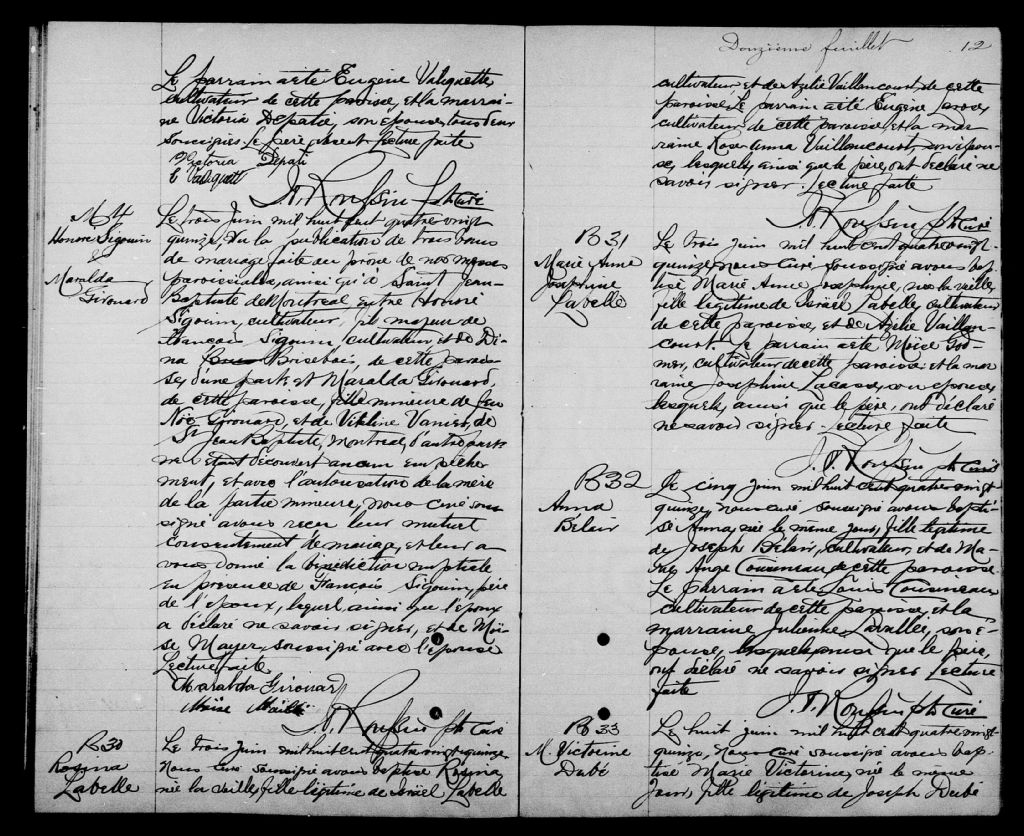 Le parrain a été Eugène Valiquette
cultivateur de cette paroisse, et la marrai-
ne Victoria Depatie, son épouse, tous deux
soussignés. Le père absent. Lecture faite
Victoria Depati
E Valiquett
J. Roussin Ptre Curé
M 4
Honoré Sigouin
&
Maralda
Girouard
Le trois Juin mil huit cent quatre vingt
quinze, Vu la publication de trois bans
de mariage faite au prône de nos messes
paroissiales, ainsi qu'à Saint Jean-
Baptiste de Montreal, entre Honoré
Sigouin, cultivateur, fils majeur de
François Sigouin, cultivateur et de Di-
na Brisebois, de cette parois-
se, d'une part; et Maralda Girouard,
de cette paroisse, fille mineure de feu
Noé Girouard, et de Vitaline Vanier, de
St Jean Baptiste, Montreal, d'autre part;
ne s'étant découvert aucun empêche-
ment, et avec l'autorisation de la mère
de la partie mineure, nous curé sous-
signé avons reçu leur mutuel
consentement de mariage, et leur a-
vons donné la bénédiction nuptiale
en présence de François Sigouin, père
de l'époux, lequel, ainsi que l'époux
a déclaré ne savoir signer, et de Moï-
se Mayer, soussigné avec l'épouse
Lecture faite
Maralda Girouard
Moise Maillé
J. Roussin Ptre Curé
B 30
Rosina
Labelle
Le trois Juin mil huit cent quatre vingt quinze
Nous Curé soussigné avons baptisé Rosina
née la veille, fille légitime de Israël Labelle
Douzième feuillet 12
cultivateur et de Azilie Vaillancourt de cette
paroisse. Le parrain a été Eugène Larose,
cultivateur de cette paroisse et la mar-
raine Rose Anna Vaillancourt, son épou-
se, lesquels, ainsi que le père, ont déclaré ne
savoir signer. Lecture faite
J. Roussin Ptre Curé
B 31
Marie Anne
Josephine
Labelle
Le trois Juin mil huit cent quatre vingt-
quinze, nous Curé soussigné avons bap-
tisé Marie Anne Josephine, née la veille,
fille légitime de Israël Labelle, cultivateur
de cette paroisse, et de Azilie Vaillan-
court. Le parrain a été Moïse God-
mer, cultivateur de cette paroisse et la mar
raine Josephine Lacasse, son épouse,
lesquels, ainsi que le père, ont déclaré
ne savoir signer. Lecture faite
J. Roussin Ptre Curé
B 32
Anna
Bélair
Le cinq Juin mil huit cent quatre vingt-
quinze, nous curé soussigné avons bapti-
sé Anna, née le même jour, fille légitime
de Joseph Bélair, cultivateur, et de Ma-
rie Ange Cousineau de cette paroisse.
Le parrain a été Louis Cousineau
cultivateur de cette paroisse, et la
marraine Julienne Lavallée, son é-
pouse, lesquels, ainsi que le père,
ont déclaré ne savoir signer Lecture
faite
J. Roussin Ptre Curé
B 33
M. Victorine
Dubé
Le huit Juin mil huit cent quatre vingt-
quinze, Nous Curé soussigné avons bap-
tisé Marie Victorine, née le même
jour, fille légitime de Joseph Dubé